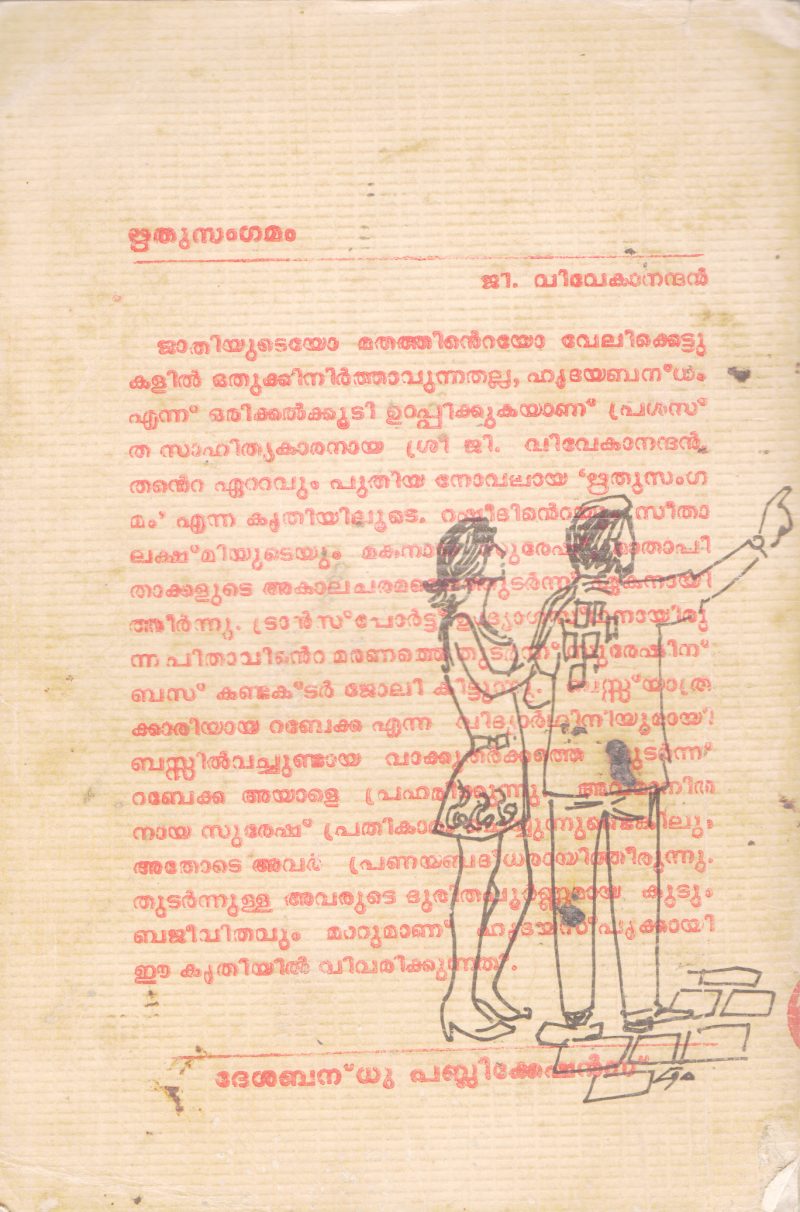 ഋതുസംഗമം
ജി. വിവേകാനന്ദൻ
ജാതിയുടെയോ മതത്തിൻെറയോ വേലിക്കെട്ടു
കളിൽ ഒതുക്കിനിർത്താവുന്നതല്ല, ഹൃദയബന്ധം
എന്ന് ഒരിക്കൽക്കൂടി ഉറപ്പിക്കുകയാണ് പ്രശസ്
ത സാഹിത്യകാരനായ ശ്രീ ജി. വിവേകാനന്ദൻ,
തൻെറ ഏററവും പുതിയ നോവലായ 'ഋതുസംഗ
മം' എന്ന കൃതിയിലൂടെ. റഷീദിൻെറയും സീതാ
ലക്ഷ്മിയുടെയും മകനായ സുരേഷ് മാതാപി
താക്കളുടെ അകാലചരമത്തെ തുടർന്ന് ഏകനായി
ത്തീർന്നു. ട്രാൻസ്പോർട്ട് ഉദ്യോഗസ്ഥനായിരു
ന്ന പിതാവിൻെറ മരണത്തെ തുടർന്ന് സുരേഷിന്
ബസ് കണ്ടക്ടർ ജോലി കിട്ടുന്നു. ബസ്സ് യാത്ര
ക്കാരിയായ റബേക്ക എന്ന വിദ്യാർത്ഥിനിയുമായി
ബസ്സിൽവച്ചുണ്ടായ വാക്കുതർക്കത്തെ തുടർന്ന്
റബേക്ക അയാളെ പ്രഹരിക്കുന്നു. അവമാനിത
നായ സുരേഷ് പ്രതികാരം ചെയ്യുന്നുണ്ടെങ്കിലും
അതോടെ അവർ പ്രണയബദ്ധരായിത്തീരുന്നു.
തുടർന്നുള്ള അവരുടെ ദുരിതപൂർണ്ണമായ കുടും
ബജീവിതവും മാറുമാണ് ഹൃദയസ്പൃക്കായി
ഈ കൃതിയിൽ വിവരിക്കുന്നത്.
ദേശബന്ധു പബ്ലിക്കേഷൻസ്